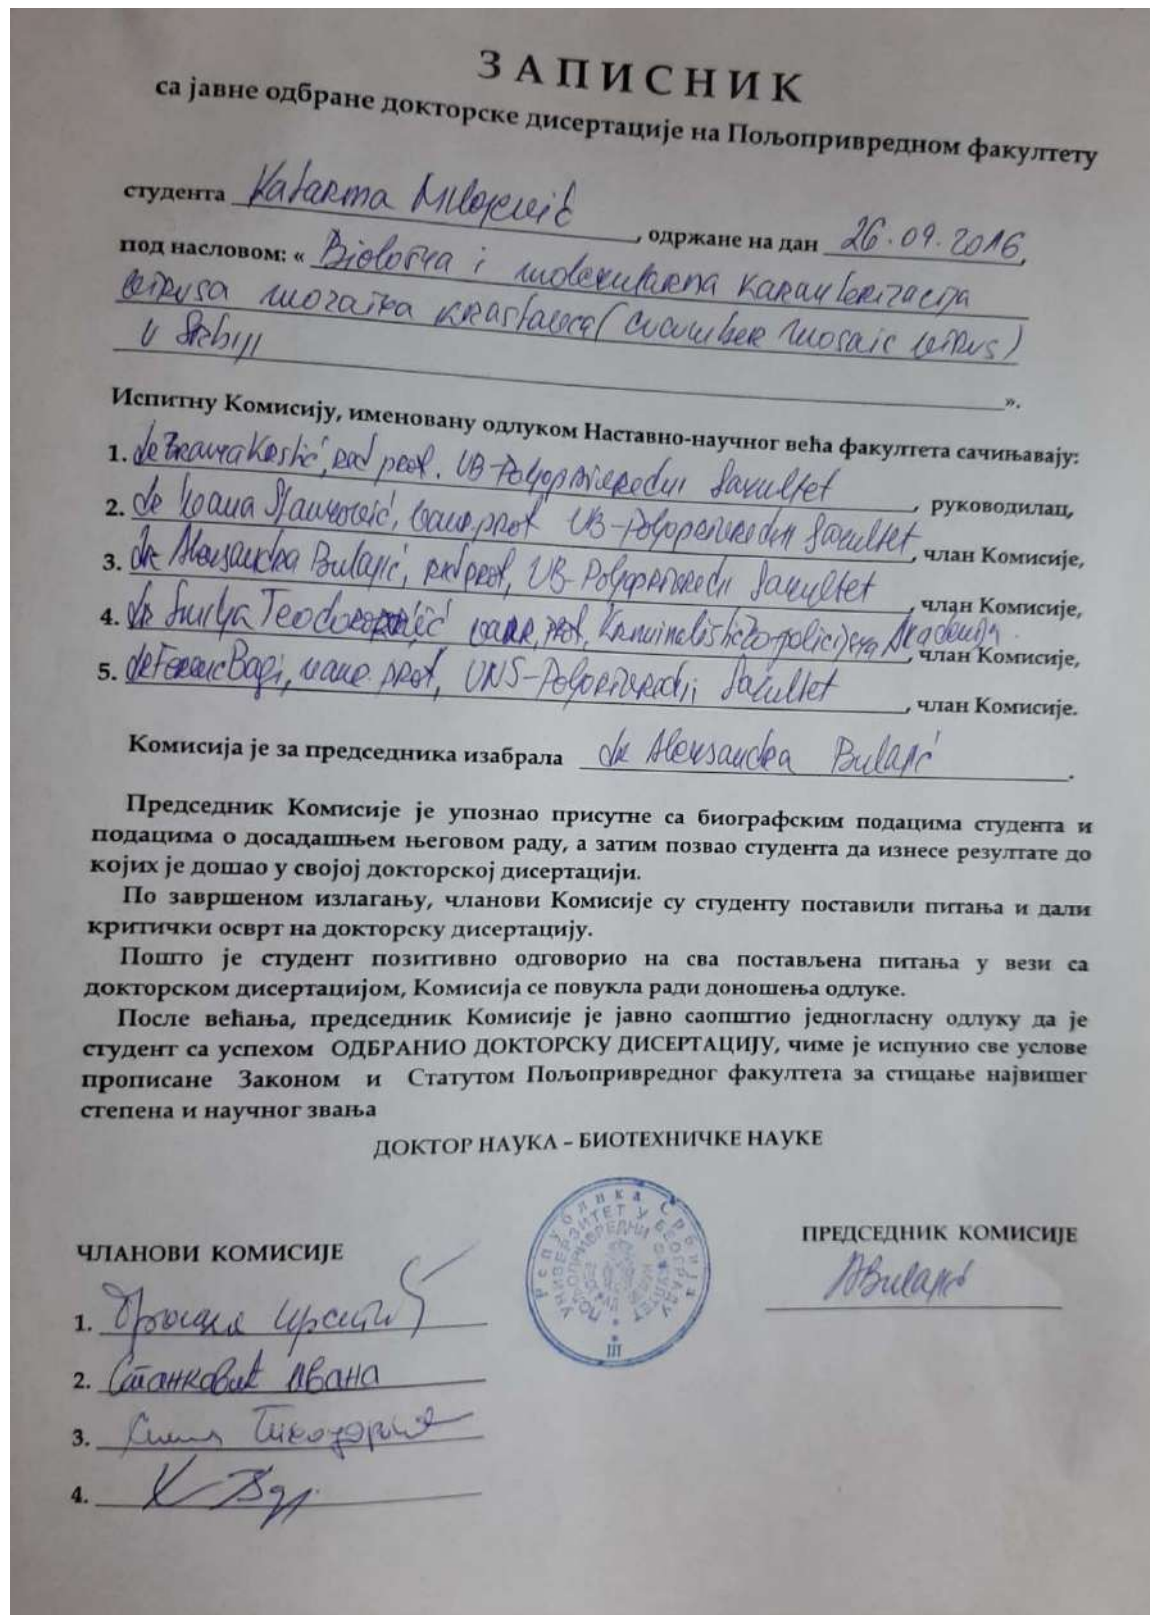 ЗАПИСНИК
са јавне одбране докторске дисертације на Пољопривредном факултету
студента Katarina Milojević, одржане на дан 26.09.2016,
под насловом: « Biološka i molekularna karakterizacija
virusa mozaika krastavca (Cucumber mosaic virus)
u Srbiji
».
Испитну Комисију, именовану одлуком Наставно-научног већа факултета сачињавају:
1. dr Branka Krstić, red prof. UB-Poljoprivredni fakultet, руководилац,
2. dr Ivana Stanković, vanr. prof UB-Poljoprivredni fakultet, члан Комисије,
3. dr Aleksandra Bulajić, red prof, UB-Poljoprivredni fakultet, члан Комисије,
4. dr Smilja Teodorović vanr. prof, Kriminalističko-policijska Akademija, члан Комисије,
5. dr Ferenc Bagi, vanr. prof, UNS-Poljoprivredni fakultet, члан Комисије.
Комисија је за председника изабрала dr Aleksandra Bulajić.
Председник Комисије је упознао присутне са биографским подацима студента и
подацима о досадашњем његовом раду, а затим позвао студента да изнесе резултате до
којих је дошао у својој докторској дисертацији.
По завршеном излагању, чланови Комисије су студенту поставили питања и дали
критички осврт на докторску дисертацију.
Пошто је студент позитивно одговорио на сва постављена питања у вези са
докторском дисертацијом, Комисија се повукла ради доношења одлуке.
После већања, председник Комисије је јавно саопштио једногласну одлуку да је
студент са успехом ОДБРАНИО ДОКТОРСКУ ДИСЕРТАЦИЈУ, чиме је испунио све услове
прописане Законом и Статутом Пољопривредног факултета за стицање највишег
степена и научног звања
ДОКТОР НАУКА – БИОТЕХНИЧКЕ НАУКЕ
Република Србија
УНИВЕРЗИТЕТ У БЕОГРАДУ
ПОЉОПРИВРЕДНИ ФАКУЛТЕТ
III
ЧЛАНОВИ КОМИСИЈЕ
ПРЕДСЕДНИК КОМИСИЈЕ
ABulajić
1.
2. Станковић Ивана
3.
4.